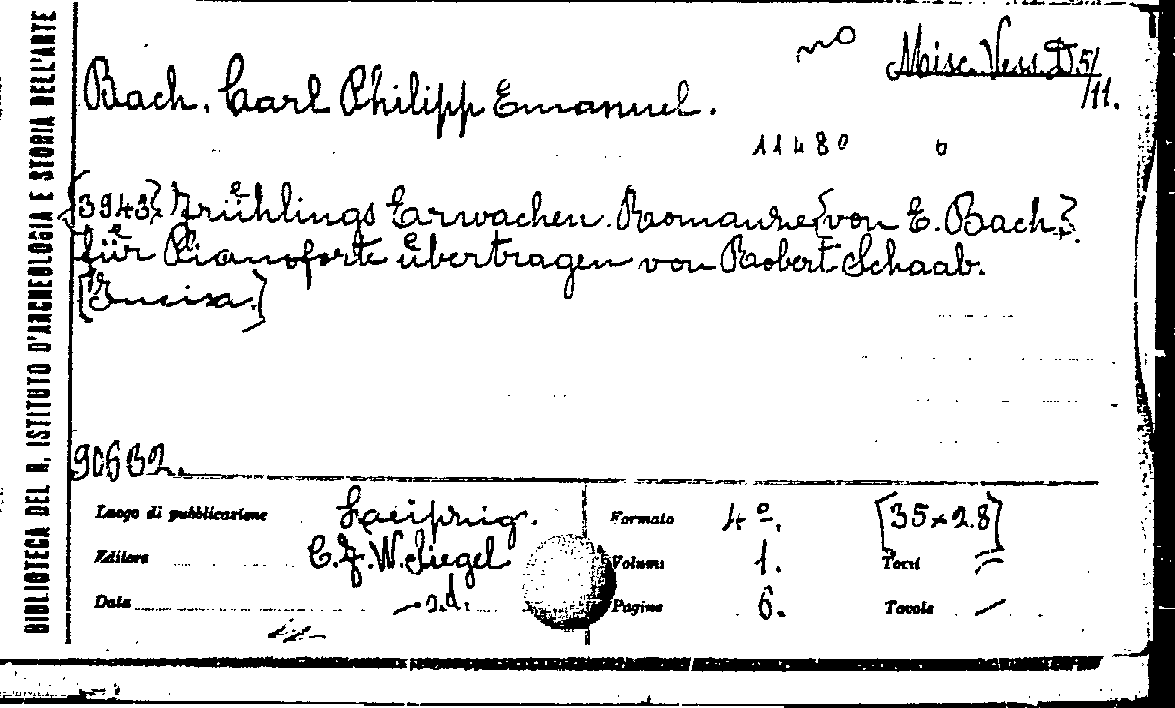 BIBLIOTECA DEL R. ISTITUTO D'ARCHEOLOGIA E STORIA DELL'ARTE
no
Misc. Vess. D.5/
/11.
Bach. Carl Philipp Emanuel.
11480 6
[3943] Frühlings Erwachen. Romanze [von E. Bach].
für Pianoforte übertragen von Robert Schaab.
[Incisa.]
90632.
Luogo di pubblicazione Leipzig. Formato 4º. [35×28]
Editore C.F.W. Siegel Volumi 1. Tomi —
Data s.d. Pagine 6. Tavole —